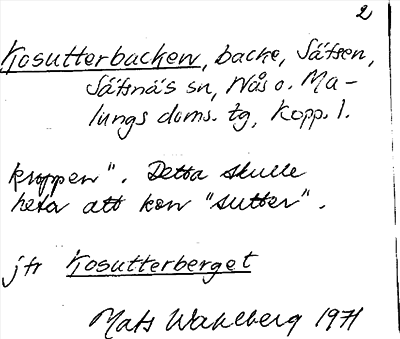 2
Kosutterbacken, backe, Säfsen,
Säfsnäs sn, Nås o. Ma-
lungs doms. tg, Kopp. l.
kroppen". Detta skulle
heter att kon "sutter".
jfr Kosutterberget
Mats Wahlberg 1971